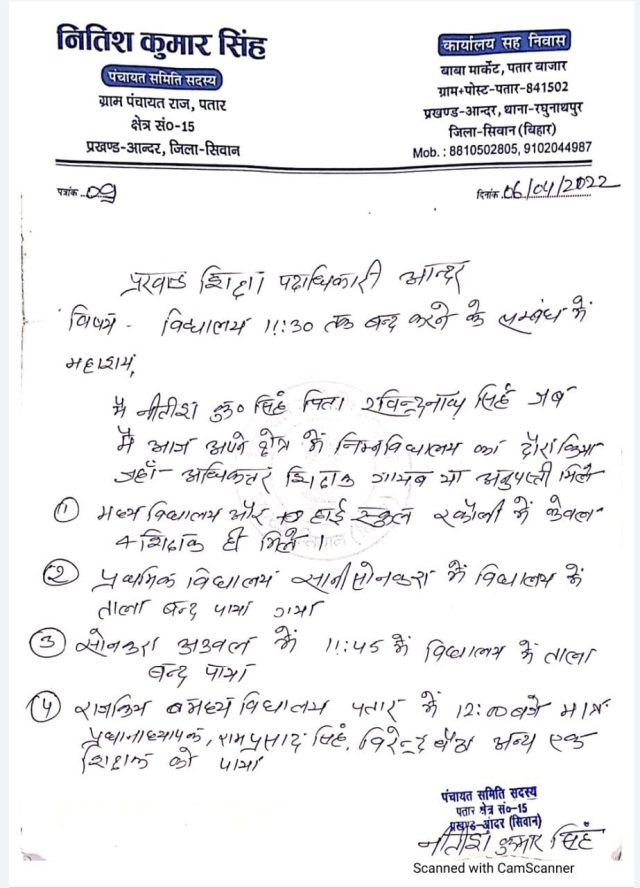 नितिश कुमार सिंह
पंचायत समिति सदस्य
ग्राम पंचायत राज, पतार
क्षेत्र सं०-15
प्रखण्ड-आन्दर, जिला-सिवान
कार्यालय सह निवास
बाबा मार्केट, पतार बाजार
ग्राम+पोस्ट-पतार-841502
प्रखण्ड-आन्दर, थाना-रघुनाथपुर
जिला-सिवान (बिहार)
Mob. : 8810502805, 9102044987
पत्रांक ..09
दिनांक.06/04/2022
प्रखण्ड शिक्षा पदाधिकारी आन्दर
विषय - विद्यालय 11:30 तक बन्द करने के सम्बंध में
महाशय,
मै नीतीश कु० सिंह पिता रविन्द्रनाथ सिंह जब
मै आज अपने क्षेत्र में निम्न विद्यालय का दौरा किया
जहाँ अधिकतर शिक्षक गायब या मिले
① मध्य विद्यालय और हाई स्कूल रकौली में केवल
4 शिक्षक ही मिले।
② प्राथमिक विद्यालय में विद्यालय में
ताला बन्द पाया गया
③ में 11:45 में विद्यालय में ताला
बन्द पाया
④ मध्य विद्यालय पतार में 12:00 बजे मात्र
प्रधानाध्यापक, राम प्रसाद सिंह, अन्य एक
शिक्षक को पाया
पंचायत समिति सदस्य
पतार क्षेत्र सं०-15
प्रखण्ड-आंदर (सिवान)
नीतीश कुमार सिंह
Scanned with CamScanner